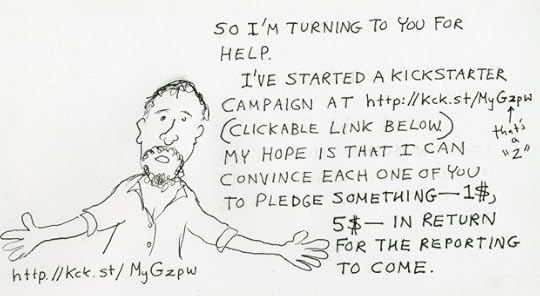 SO I'M TURNING TO YOU FOR
HELP.
I'VE STARTED A KICKSTARTER
CAMPAIGN AT http://kck.st/MyGzpw
(CLICKABLE LINK BELOW)
that's
a
"Z"
MY HOPE IS THAT I CAN
CONVINCE EACH ONE OF YOU
TO PLEDGE SOMETHING—1$,
5$— IN RETURN
FOR THE REPORTING
TO COME.
http://kck.st/MyGzpw